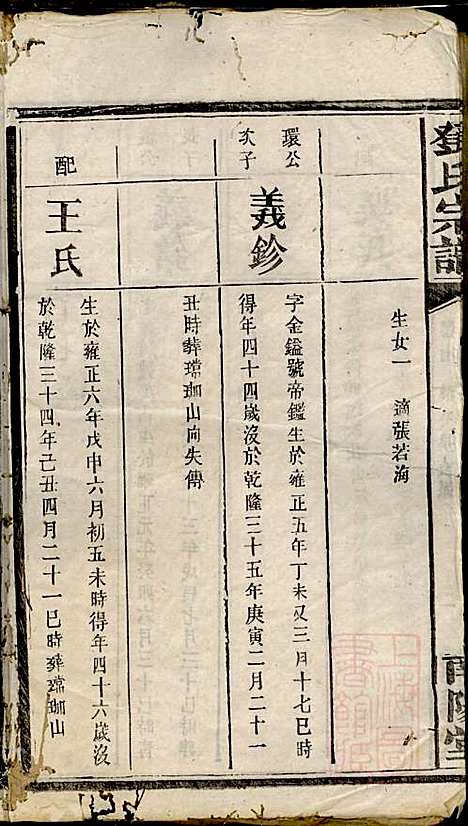 鄧氏宗譜
南陽堂
生女一 適張若海
環公
次子
義鉁
字金鎰號帝鑑生於雍正五年丁未又三月十七巳時
得年四十四歲沒於乾隆三十五年庚寅二月二十一
丑時葬璫珈山向失傳
配
王氏
生於雍正六年戊申六月初五未時得年四十六歲沒
於乾隆三十四年己丑四月二十一巳時葬璫珈山